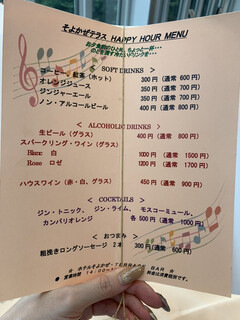 そよかぜテラス HAPPY HOUR MENU
お夕食前のひと時、ちょっと一杯・・・
のどを潤す冷たいドリンクを・・・
< SOFT DRINKS >
コーヒー、紅茶（ホット） 300円（通常 600円）
オレンジジュース 350円（通常 700円）
ジンジャーエール 350円（通常 700円）
ノン・アルコールビール 400円（通常 800円）
< ALCOHOLIC DRINKS >
生ビール（グラス） 400円（通常 800円）
スパークリング・ワイン（グラス）
Blanc 白 1000円（通常 1500円）
Rose ロゼ 1200円（通常 1700円）
ハウスワイン（赤・白、グラス） 450円（通常 900円）
< COCKTAILS >
ジン・トニック、 ジン・ライム、 モスコーミュール、
カンパリオレンジ 各 500円（通常 1000円）
< おつまみ >
粗挽きロングソーセージ 2本 300円（通常 600円）
営業時間 14:00